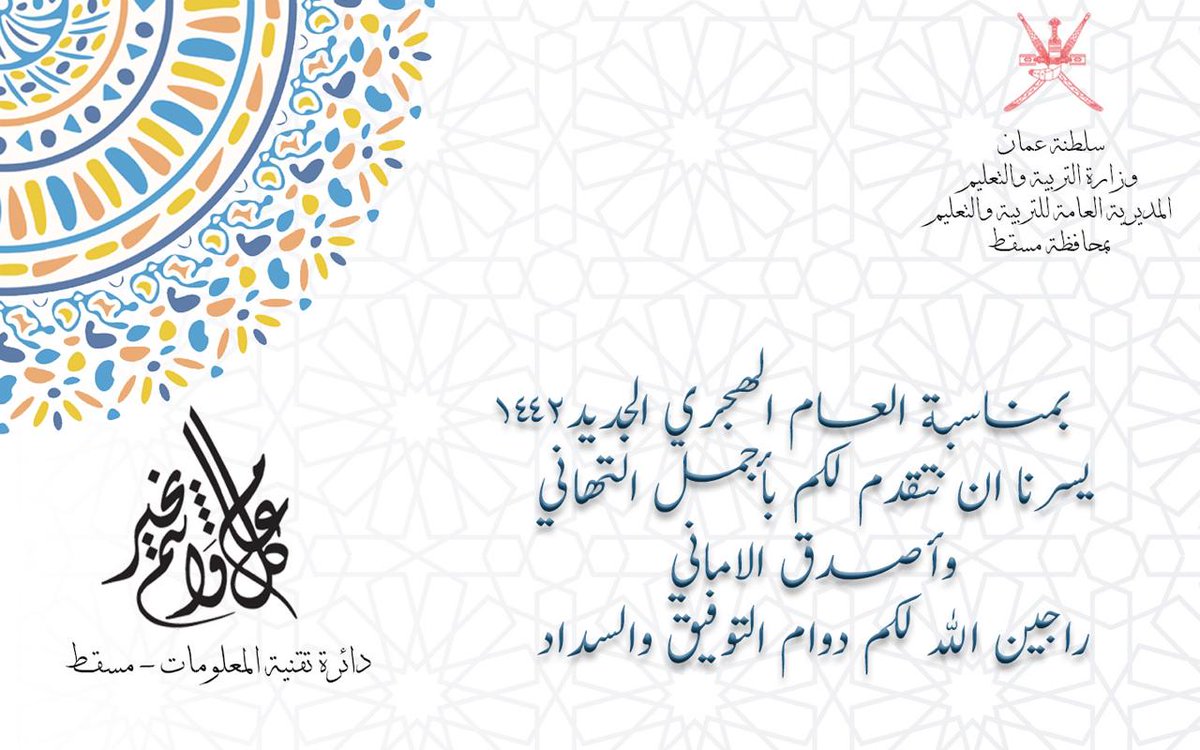 سلطنة عمان
وزارة التربية والتعليم
المديرية العامة للتربية والتعليم
بمحافظة مسقط
بمناسبة العام الهجري الجديد ١٤٤٢
يسرنا ان نتقدم لكم بأجمل التهاني
وأصدق الاماني
راجين الله لكم دوام التوفيق والسداد
كل عام وانتم بخير
دائرة تقنية المعلومات - مسقط